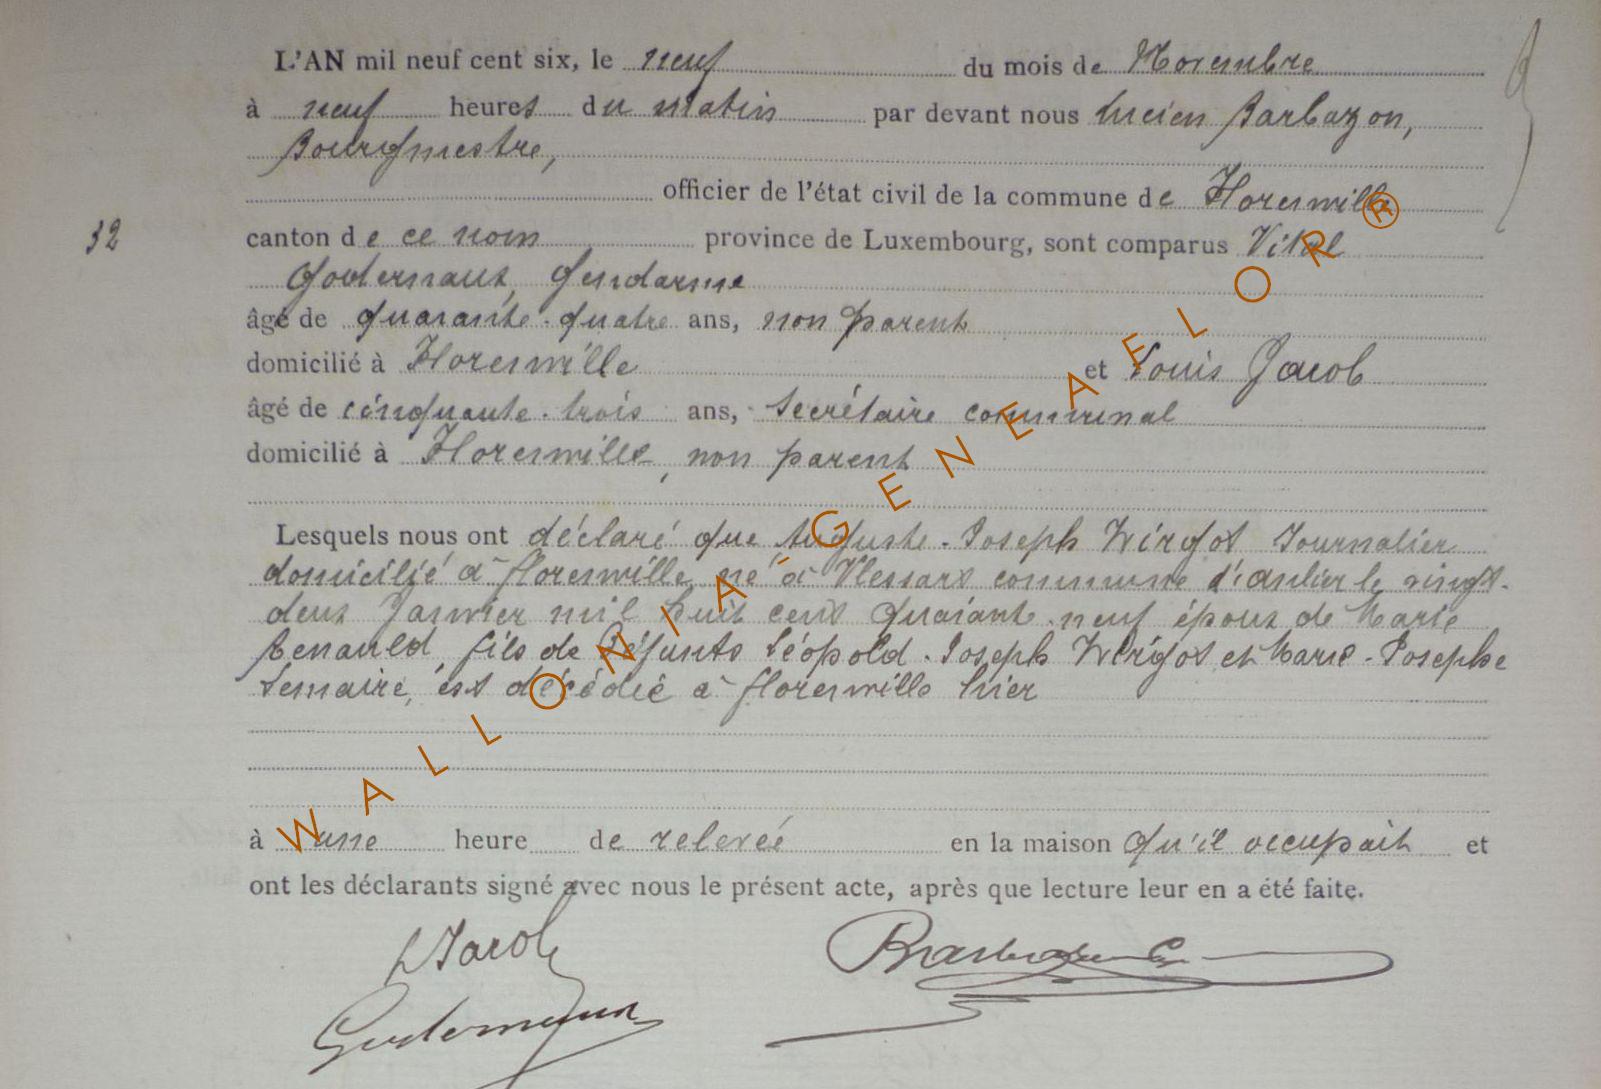 L'AN mil neuf cent six, le neuf du mois de Novembre
à neuf heures du matin par devant nous Lucien Barbazon,
Bourgmestre,
officier de l'état civil de la commune de Florenville
32 canton de ce nom province de Luxembourg, sont comparus Vital
Godernaux, Gendarme
âgé de quarante-quatre ans, non parent
domicilié à Florenville et Louis Jacob
âgé de cinquante-trois ans, Secrétaire communal
domicilié à Florenville, non parent
Lesquels nous ont déclaré que Auguste-Joseph Wirgot Journalier
domicilié à florenville, né à Vlessart commune d'anlier le vingt-
deux Janvier mil huit cent quarante-neuf époux de Marie
Renauld, fils de défunts Léopold-Joseph Wirgot et Marie-Josephe
Lemaire, est décédé à florenville hier
à une heure de relevée en la maison qu'il occupait et
ont les déclarants signé avec nous le présent acte, après que lecture leur en a été faite.
LJacob
Barbazon
Godernaux
WALLONIA-GENEAELOR®